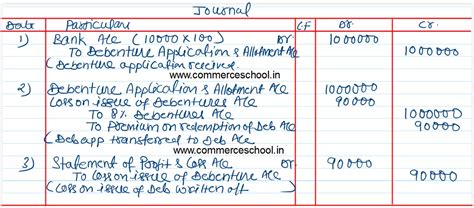 Journal
Date Particulars CF Dr. Cr.
1) Bank A/c (10000×100) Dr 1000000
To Debenture Application & Allotment A/c 1000000
(Debenture application received)
www.commerceschool.in
2) Debenture Application & Allotment A/c 1000000
Loss on issue of Debentures A/c 90000
To 8% Debentures A/c 1000000
To Premium on redemption of Deb A/c 90000
(Deb app transferred to Deb A/c
www.commerceschool.in
3) Statement of Profit & Loss A/c Dr 90000
To Loss on issue of Debenture A/c 90000
(Loss on issue of Deb written off)